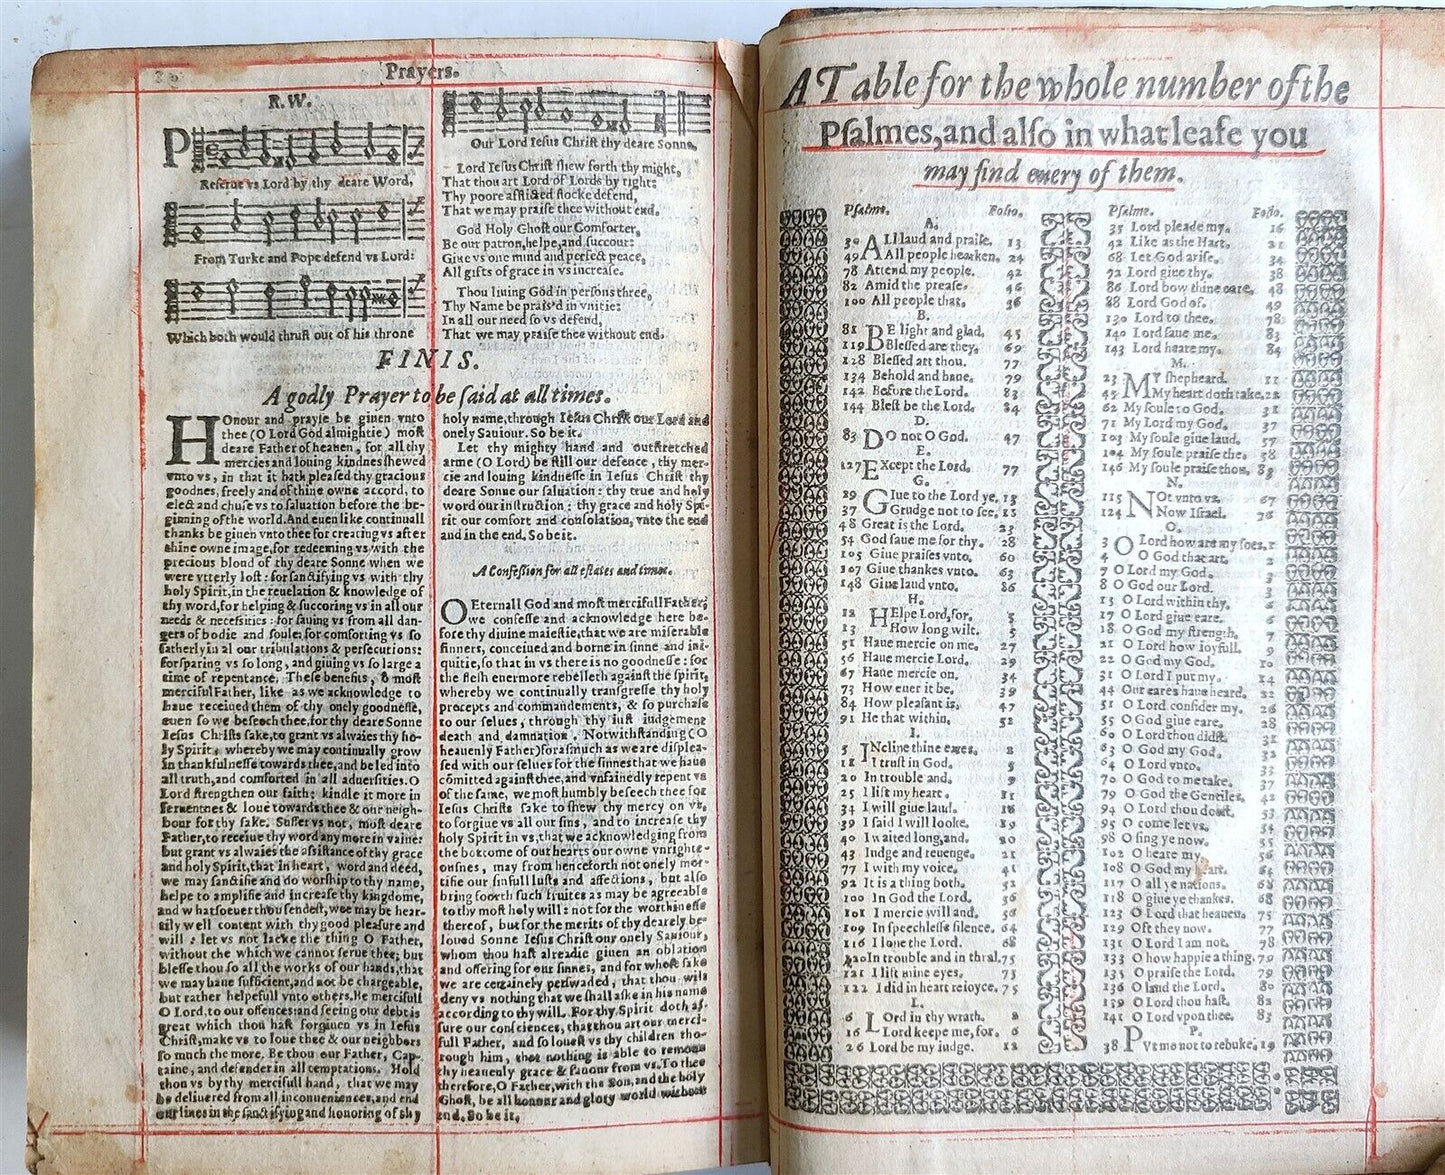 Prayers.
R.W.
PReserue vs Lord by thy deare Word,
From Turke and Pope defend vs Lord:
Which both would thrust out of his throne
Our Lord Iesus Christ thy deare Sonne,
Lord Iesus Christ shew forth thy might,
That thou art Lord of Lords by right:
Thy poore afflicted flocke defend,
That we may praise thee without end.
God Holy Ghost our Comforter,
Be our patron, helpe, and succour:
Giue vs one mind and perfect peace,
All gifts of grace in vs increase.
Thou liuing God in persons three,
Thy Name be prais'd in vnitie:
In all our need so vs defend,
That we may praise thee without end.
FINIS.
A godly Prayer to be said at all times.
HOnour and prayse be giuen vnto
thee (O Lord God almightie) most
deare Father of heauen, for all thy
mercies and louing kindnes shewed
vnto vs, in that it hath pleased thy gracious
goodnes, freely and of thine owne accord, to
elect and chuse vs to saluation before the be-
ginning of the world. And euen like continuall
thanks be giuen vnto thee for creating vs after
thine owne image, for redeeming vs with the
precious bloud of thy deare Sonne when we
were vtterly lost: for sanctifying vs with thy
holy Spirit, in the reuelation & knowledge of
thy word, for helping & succoring vs in all our
needs & necessities: for sauing vs from all dan-
gers of bodie and soule: for comforting vs so
fatherly in al our tribulations & persecutions:
for sparing vs so long, and giuing vs so large a
time of repentance. These benefits, O most
merciful Father, like as we acknowledge to
haue receiued them of thy onely goodnesse,
euen so we beseech thee, for thy deare Sonne
Iesus Christs sake, to grant vs alwaies thy ho-
ly Spirit, whereby we may continually grow
in thankfulnesse towards thee, and be led into
all truth, and comforted in all aduersities. O
Lord strengthen our faith: kindle it more in
feruentnes & loue towards thee & our neigh-
bour for thy sake. Suffer vs not, most deare
Father, to receiue thy word any more in vaine:
but grant vs alwaies the assistance of thy grace
and holy Spirit, that in heart, word and deed,
we may sanctifie and do worship to thy name,
helpe to amplifie and increase thy kingdome,
and whatsoeuer thou sendest, wee may be hear-
tily well content with thy good pleasure and
will: let vs not lacke the thing O Father,
without the which we cannot serue thee; but
blesse thou so all the works of our hands, that
we may haue sufficient, and not be chargeable,
but rather helpefull vnto others. Be mercifull
O Lord, to our offences: and seeing our debt is
great which thou hast forgiuen vs in Iesus
Christ, make vs to loue thee & our neighbors
so much the more. Be thou our Father, Cap-
taine, and defender in all temptations. Hold
thou vs by thy mercifull hand, that we may
be deliuered from all inconueniences, and end
our liues in the sanctifying and honoring of thy
holy name, through Iesus Christ our Lord and
onely Sauiour. So be it.
Let thy mighty hand and outstretched
arme (O Lord) be still our defence, thy mer-
cie and louing kindnesse in Iesus Christ thy
deare Sonne our saluation: thy true and holy
word our instruction: thy grace and holy Spi-
rit our comfort and consolation, vnto the end
and in the end. So be it.
A Confession for all estates and times.
O Eternall God and most mercifull Father,
we confesse and acknowledge here be-
fore thy diuine maiestie, that we are miserable
sinners, conceiued and borne in sinne and ini-
quitie, so that in vs there is no goodnesse: for
the flesh euermore rebelleth against the spirit,
whereby we continually transgresse thy holy
precepts and commandements, & so purchase
to our selues, through thy iust iudgement
death and damnation. Notwithstanding (O
heauenly Father) forasmuch as we are displea-
sed with our selues for the sinnes that we haue
cõmitted against thee, and vnfainedly repent vs
of the same, we most humbly beseech thee for
Iesus Christs sake to shew thy mercy on vs,
to forgiue vs all our sins, and to increase thy
holy Spirit in vs, that we acknowledging from
the bottome of our hearts our owne vnrighte-
ousnes, may from henceforth not onely mor-
tifie our sinfull lusts and affections, but also
bring foorth such fruites as may be agreeable
to thy most holy will: not for the worthinesse
thereof, but for the merits of thy dearely be-
loued Sonne Iesus Christ our onely Sauiour,
whom thou hast alreadie giuen an oblation
and offering for our sinnes, and for whose sake
we are certainely perswaded, that thou wilt
deny vs nothing that we shall aske in his name
according to thy will. For thy Spirit doth as-
sure our consciences, that thou art our merci-
full Father, and so louest vs thy children tho-
rough him, that nothing is able to remoue
thy heauenly grace & fauour from vs. To thee
therefore, O Father, with the Son, and the holy
Ghost, be all honour and glory world without
end. So be it.
A Table for the whole number of the
Psalmes, and also in what leafe you
may find euery of them.
Psalme. Folio.
A.
30 ALl laud and praise. 13
49 All people hearken. 24
78 Attend my people. 42
82 Amid the prease. 46
100 All people that. 56
B.
81 BE light and glad. 45
119 Blessed are they. 69
128 Blessed art thou. 77
134 Behold and haue. 79
142 Before the Lord. 83
144 Blest be the Lord. 84
D.
83 DO not O God. 47
E.
127 EXcept the Lord. 77
G.
29 GIue to the Lord ye. 13
37 Grudge not to see. 18
48 Great is the Lord. 23
54 God saue me for thy. 28
105 Giue praises vnto. 60
107 Giue thankes vnto. 63
148 Giue laud vnto. 86
H.
12 HElpe Lord, for. 5
13 How long wilt. 5
51 Haue mercie on me. 27
56 Haue mercie Lord. 29
67 Haue mercie on. 34
73 How euer it be. 39
84 How pleasant is. 47
91 He that within. 52
I.
5 INcline thine eares. 2
11 I trust in God. 5
20 In trouble and. 9
25 I lift my heart. 11
34 I will giue laud. 16
39 I said I will looke. 19
40 I waited long, and. 20
43 Iudge and reuenge. 21
77 I with my voice. 41
92 It is a thing both. 52
100 In God the Lord. 56
101 I mercie will and. 56
109 In speechlesse silence. 64
116 I loue the Lord. 68
120 In trouble and in thral. 75
121 I lift mine eyes. 75
122 I did in heart reioyce. 75
L.
6 LOrd in thy wrath. 8
16 Lord keepe me, for. 6
26 Lord be my iudge. 12
Psalme. Folio.
35 Lord pleade my. 16
42 Like as the Hart. 21
68 Let God arise. 34
72 Lord giue thy. 38
86 Lord bow thine eare. 48
88 Lord God of. 49
130 Lord to thee. 78
140 Lord saue me. 83
143 Lord heare my. 84
M.
23 MY shepheard. 11
45 My heart doth take. 22
62 My soule to God. 31
71 My Lord my God. 37
103 My soule giue laud. 57
104 My soule praise the. 58
146 My soule praise thou. 85
N.
115 NOt vnto vs. 67
124 Now Israel. 76
O.
3 O Lord how are my foes. 1
4 O God that art. 2
7 O Lord my God. 3
8 O God our Lord. 3
15 O Lord within thy. 6
17 O Lord giue eare. 6
18 O God my strength. 7
21 O Lord how ioyfull. 9
22 O God my God. 10
31 O Lord I put my. 14
44 Our eares haue heard. 22
51 O Lord consider my. 26
55 O God giue eare. 28
60 O Lord thou didst. 31
63 O God my God. 32
64 O Lord vnto. 33
70 O God to me take. 37
79 O God the Gentiles. 43
94 O Lord thou doest. 53
95 O come let vs. 54
98 O sing ye now. 55
102 O heare my. 56
108 O God my heart. 64
117 O all ye nations. 68
118 O giue ye thankes. 68
123 O Lord that heauen. 75
129 Oft they now. 77
131 O Lord I am not. 78
133 O how happie a thing. 79
135 O praise the Lord. 79
136 O laud the Lord. 80
139 O Lord thou hast. 82
141 O Lord vpon thee. 83
P.
38 PVt me not to rebuke. 19